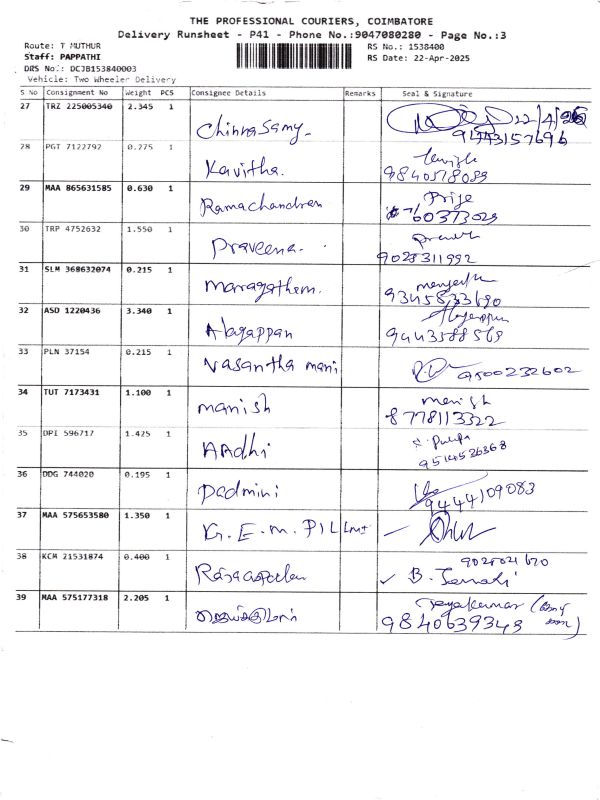 THE PROFESSIONAL COURIERS, COIMBATORE
Delivery Runsheet - P41 - Phone No.:9047080280 - Page No.:3
Route: T MUTHUR
RS No.: 1538400
Staff: PAPPATHI
RS Date: 22-Apr-2025
DRS No.: DCJB153840003
Vehicle: Two Wheeler Delivery
S No Consignment No Weight PCS Consignee Details Remarks Seal & Signature
27 TRZ 225005340 2.345 1 Chinnasamy
28 PGT 7122792 0.275 1 Kavitha.
9840578089
29 MAA 865631585 0.630 1 Ramachandren Prije
30 TRP 4752632 1.550 1 Praveena.
9028311992
31 SLM 368632074 0.215 1 Maragathem.
9345833690
32 ASD 1220436 3.340 1 Alagappan
9443588569
33 PLN 37154 0.215 1 Vasantha mani 9500232602
34 TUT 7173431 1.100 1 manish Manish
8778113322
35 DPI 596717 1.425 1 AAdhi
9514526368
36 DDG 744020 0.195 1 Padmini 9444109083
37 MAA 575653580 1.350 1 G. E. M. PILL
38 KCM 21531874 0.400 1 B. Janaki
39 MAA 575177318 2.205 1 Jayakumar
9840639343